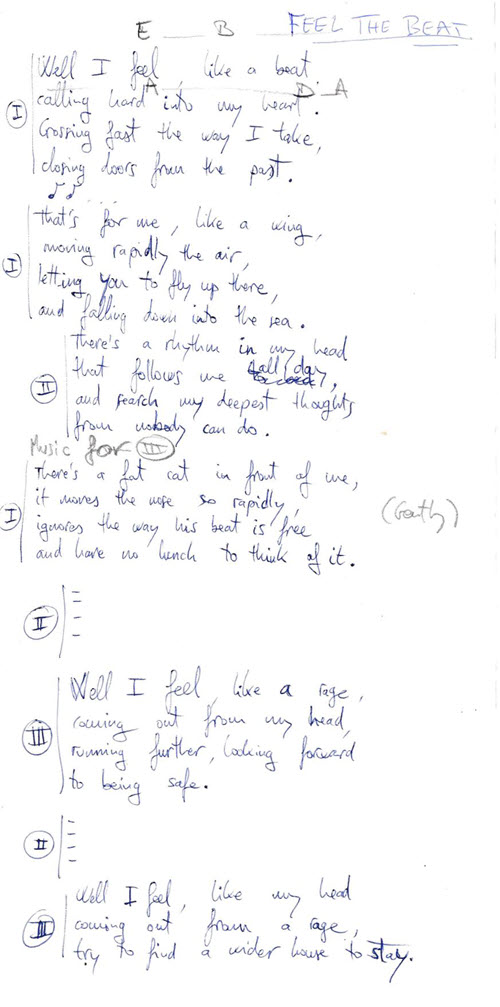 E B FEEL THE BEAT
Well I feel, like a beat
A D A
calling hard into my heart.
I
Crossing fast the way I take,
closing doors from the past.
that's for me, like a wing,
moving rapidly the air,
I
letting you to fly up there,
and falling down into the sea.
There's a rhythm in my head
that follows me all day,
II
and search my deepest thoughts
from nobody can do.
Music for III
There's a fat cat in front of me,
it moves the nose so rapidly,
I
ignores the way his beat is free
and have no lunch to think of it.
II
Well I feel, like a rage,
coming out from my head,
III
running further, looking forward
to being safe.
II
Well I feel, like my head
coming out from a rage,
III
try to find a wider house to stay.